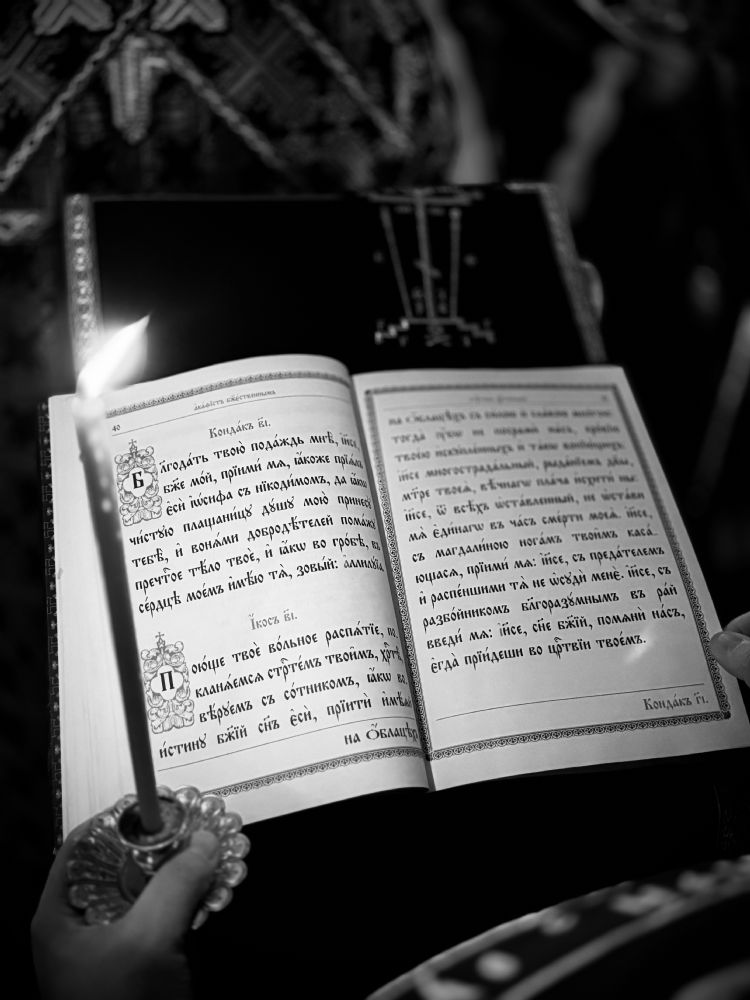 40
а҆ка́ѳїстъ бж҃е́ственнымъ
Конда́къ в҃і.
Бл҃года́ть твою̀ пода́ждь мѝ, і҆и҃се,
бж҃е мо́й, прїимѝ мѧ̀, ꙗ҆́коже прїѧ́лъ
є҆сѝ і҆ѡ́сифа съ нїкоди́момъ, да ꙗ҆́кѡ
чи́стꙋю плащани́цꙋ дꙋ́шꙋ мою̀ принесꙋ̀
тебѣ̀, и҆ воня́ми добродѣ́телей пома́жꙋ
пречⷭ҇тое тѣ́ло твоѐ, и҆ ꙗ҆́кѡ во гро́бѣ, въ
се́рдцѣ мое́мъ и҆мѣ́ю тѧ̀, зовы́й: а҆ллилꙋ́їа
І҆́косъ в҃і.
Пою́ще твоѐ во́льное распѧ́тїе, по
кланѧ́емсѧ стрⷭ҇те́мъ твои̑мъ, хрⷭ҇тѐ,
вѣ́рꙋемъ съ со́тникомъ, ꙗ҆́кѡ во
и҆́стинꙋ бж҃їй сн҃ъ є҆сѝ, прїитѝ и҆мѣ́ѧй
на ѻ҆́блацѣхъ
на ѻ҆́блацѣхъ съ си́лою и҆ сла́вою мно́гою:
тогда̀ не посрамѝ на́съ,
твое́ю и҆скꙋ́пленныхъ и҆ та́кѡ
і҆и҃се многострада́льный, рыда́нїемъ
мт҃ре твоеѧ̀, вѣ́чнагѡ пла́ча и҆схитѝ ны̀:
і҆и҃се, ѿ всѣ́хъ ѡ҆ста́вленный, не ѡ҆ста́ви
мѧ̀ є҆ди́нагѡ въ ча́съ сме́рти моеѧ̀. і҆и҃се,
съ магдали́ною нога́мъ твои̑мъ каса́
ющасѧ, прїимѝ мѧ̀: і҆и҃се, съ преда́телемъ
и҆ распе́ншими тѧ̀ не ѡ҆сꙋдѝ менѐ. і҆и҃се, съ
разбо́йникомъ бл҃горазꙋ́мнымъ въ ра́й
введи́ мѧ: і҆и҃се, сн҃е бж҃їй, помѧнѝ на́съ,
є҆гда̀ прїи́деши во црⷭ҇твїи твое́мъ.
Конда́къ г҃і.